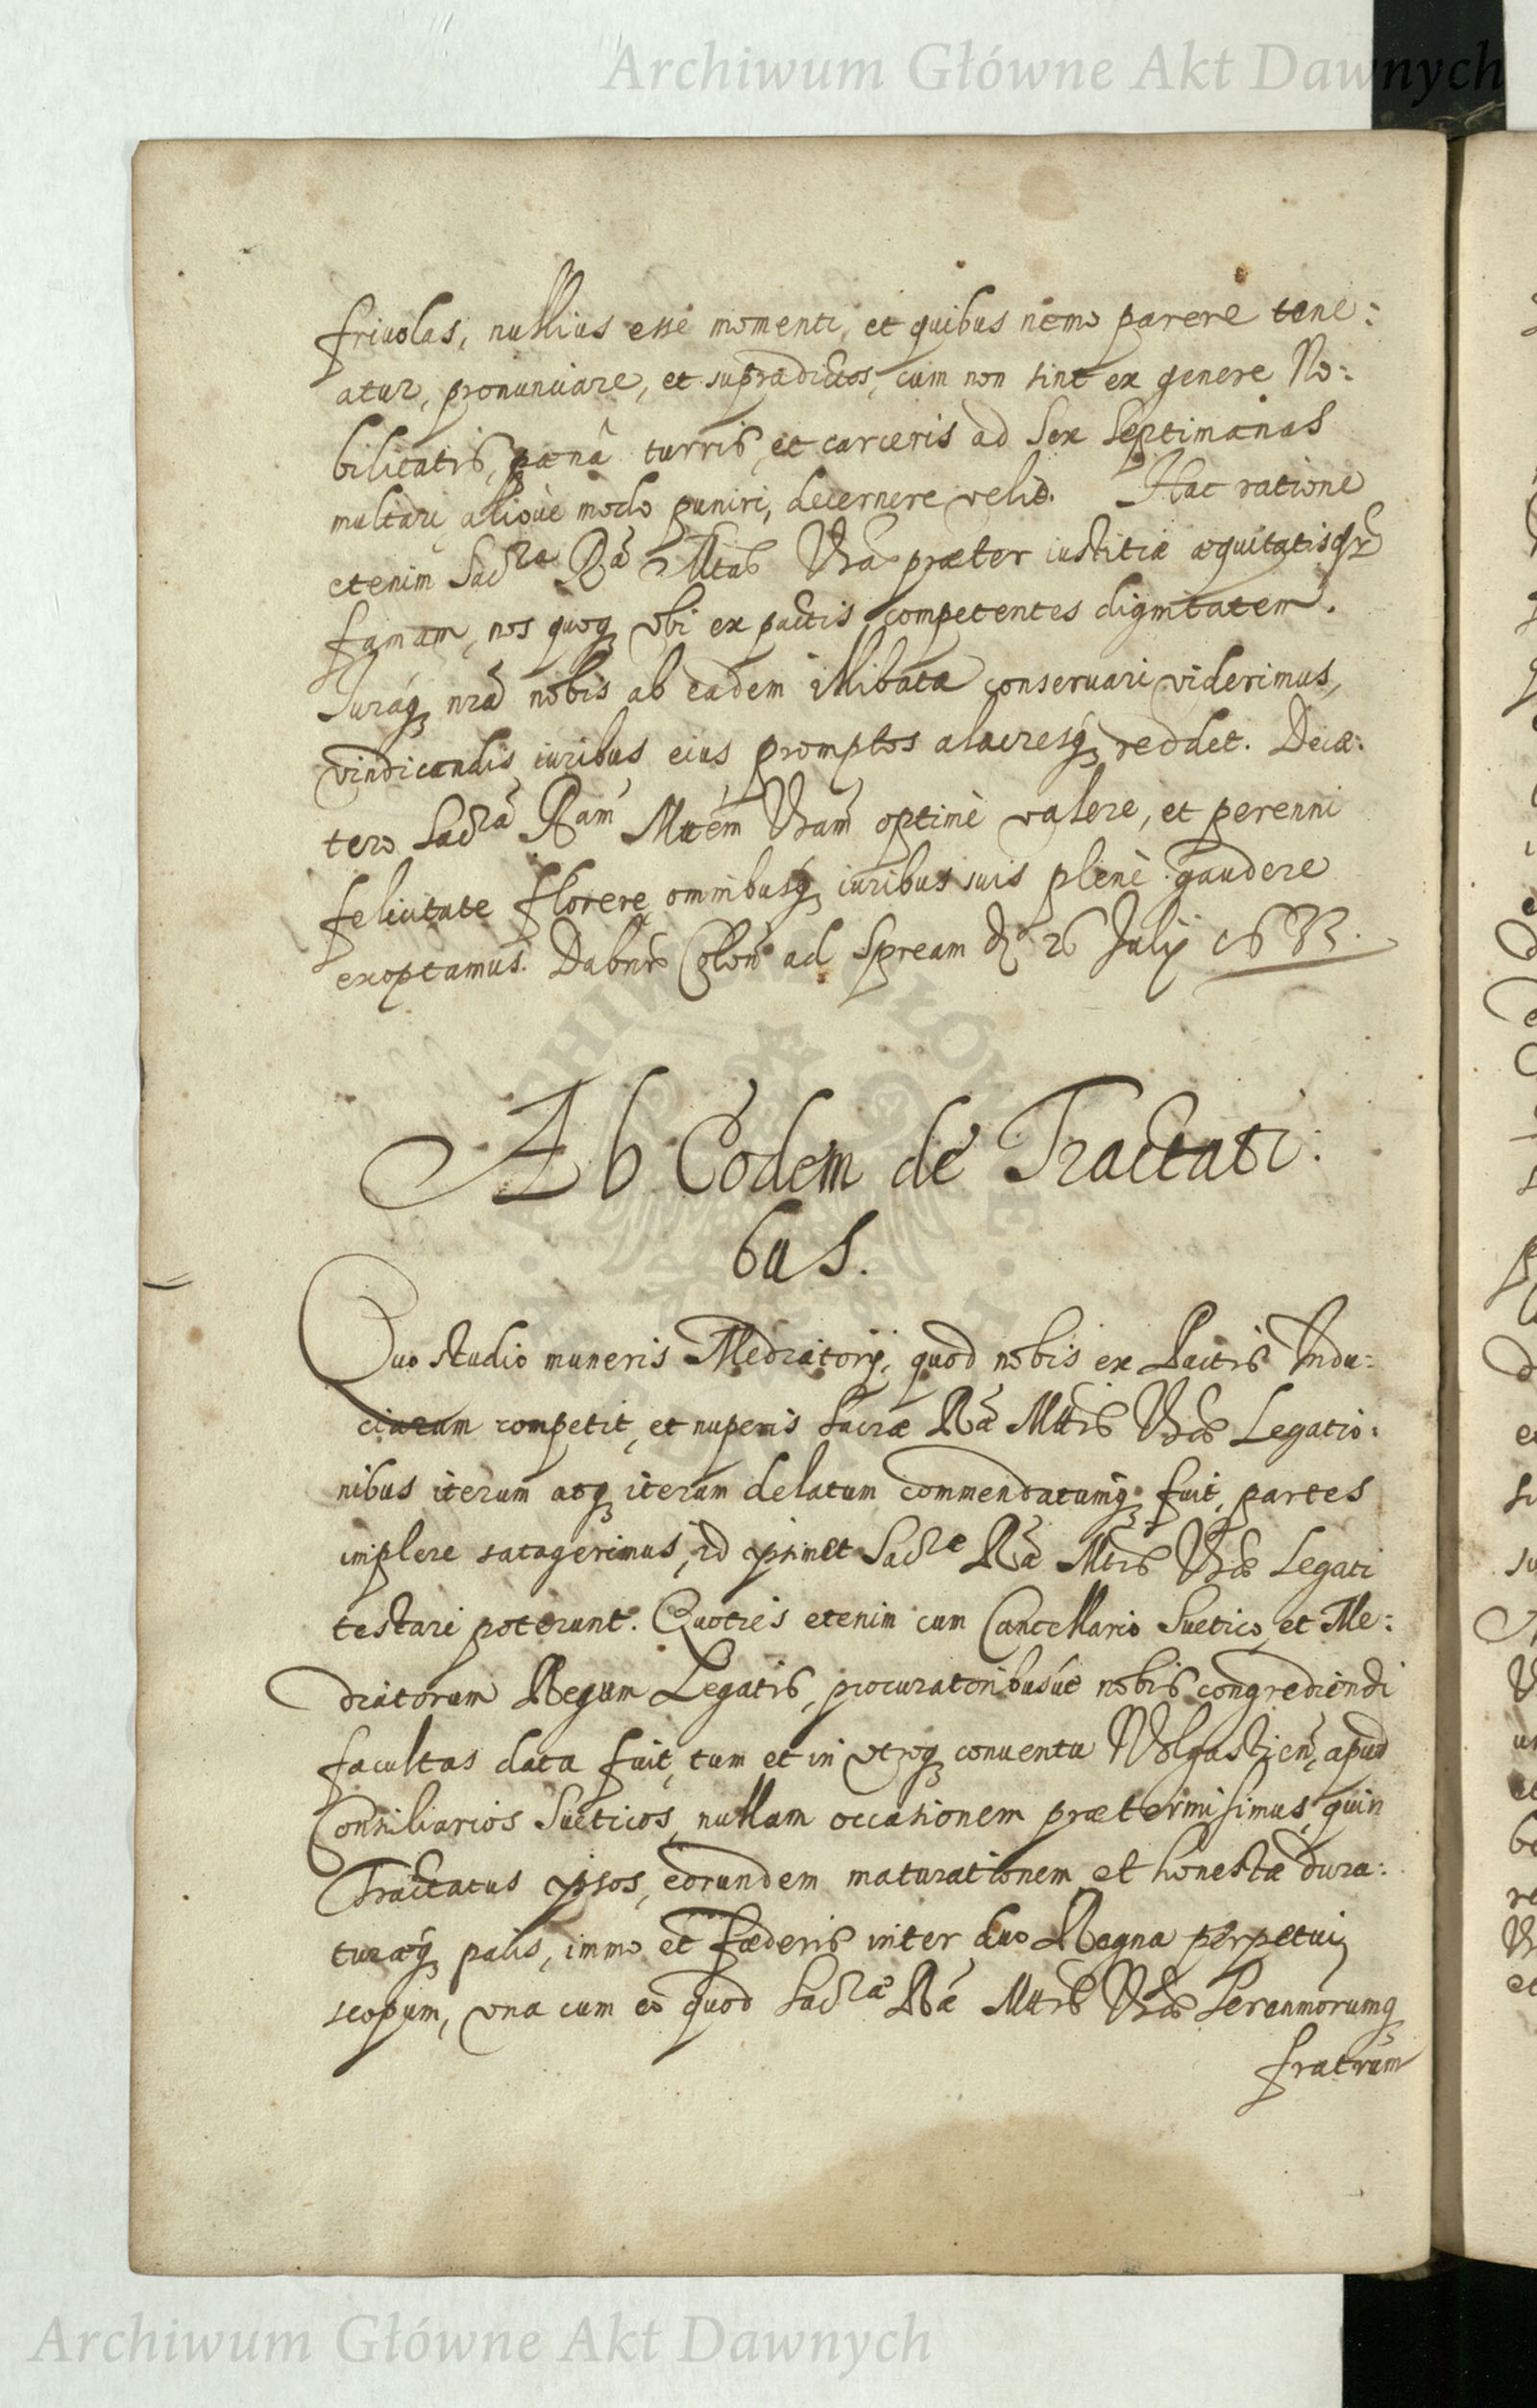 Archiwum Główne Akt Dawnych
friuolas, nullius esse momenti, et quibus nemo parere tene:
atur, pronunciare, et supradictos, cum non sint ex genere No:
bilitatis, pænâ turris, et carceris ad Sex Septimanas
multari aliove modo puniri, decernere velit. Hac ratione
etenim Sacrae Ra Mtas Vra præter iustitiæ æquitatisq
famam, nos quoq vbi ex pactis competentes dignitatem.
Juraq nra nobis ab eadem illibata conseruari viderimus,
vindicandis iuribus eius promptos alacresq reddet. De cæ:
tero Sacra Ram Mttem Vram optimè valere, et perenni
felicitate florere omnibusq iuribus suis plenè gaudere
exoptamus. Colon ad Spream d 26 Julij 1633.
Ab Eodem de Tractati:
bus.
Quo studio muneris Mediatorij, quod nobis ex Pactis Indu:
ciarum competit, et nuperis Sacræ Ræ Mttis Vræ Legatio:
nibus iterum atq iterum delatum commendatumq fuit, partes
implere satagerimus, id ipsimet Sacrae Ræ Mttis Vræ Legati
testari poterunt. Quoties etenim cum Cancellario Suetico, et Me:
diatorum Regum Legatis, procuratoribusve nobis congrediendi
facultas data fuit, tum et in vtroq conuentu Wolgastien, apud
Consiliarios Sueticos, nullam occasionem prætermisimus, quin
Tractatus ipsos, eorundem maturationem et honestæ dura:
turæq pacis, immo et fœderis inter duo Regna perpetui
scopum, vna cum eo quod Sacrae Ræ Mttis Vræ Serenmorumq
fratrum
Archiwum Główne Akt Dawnych